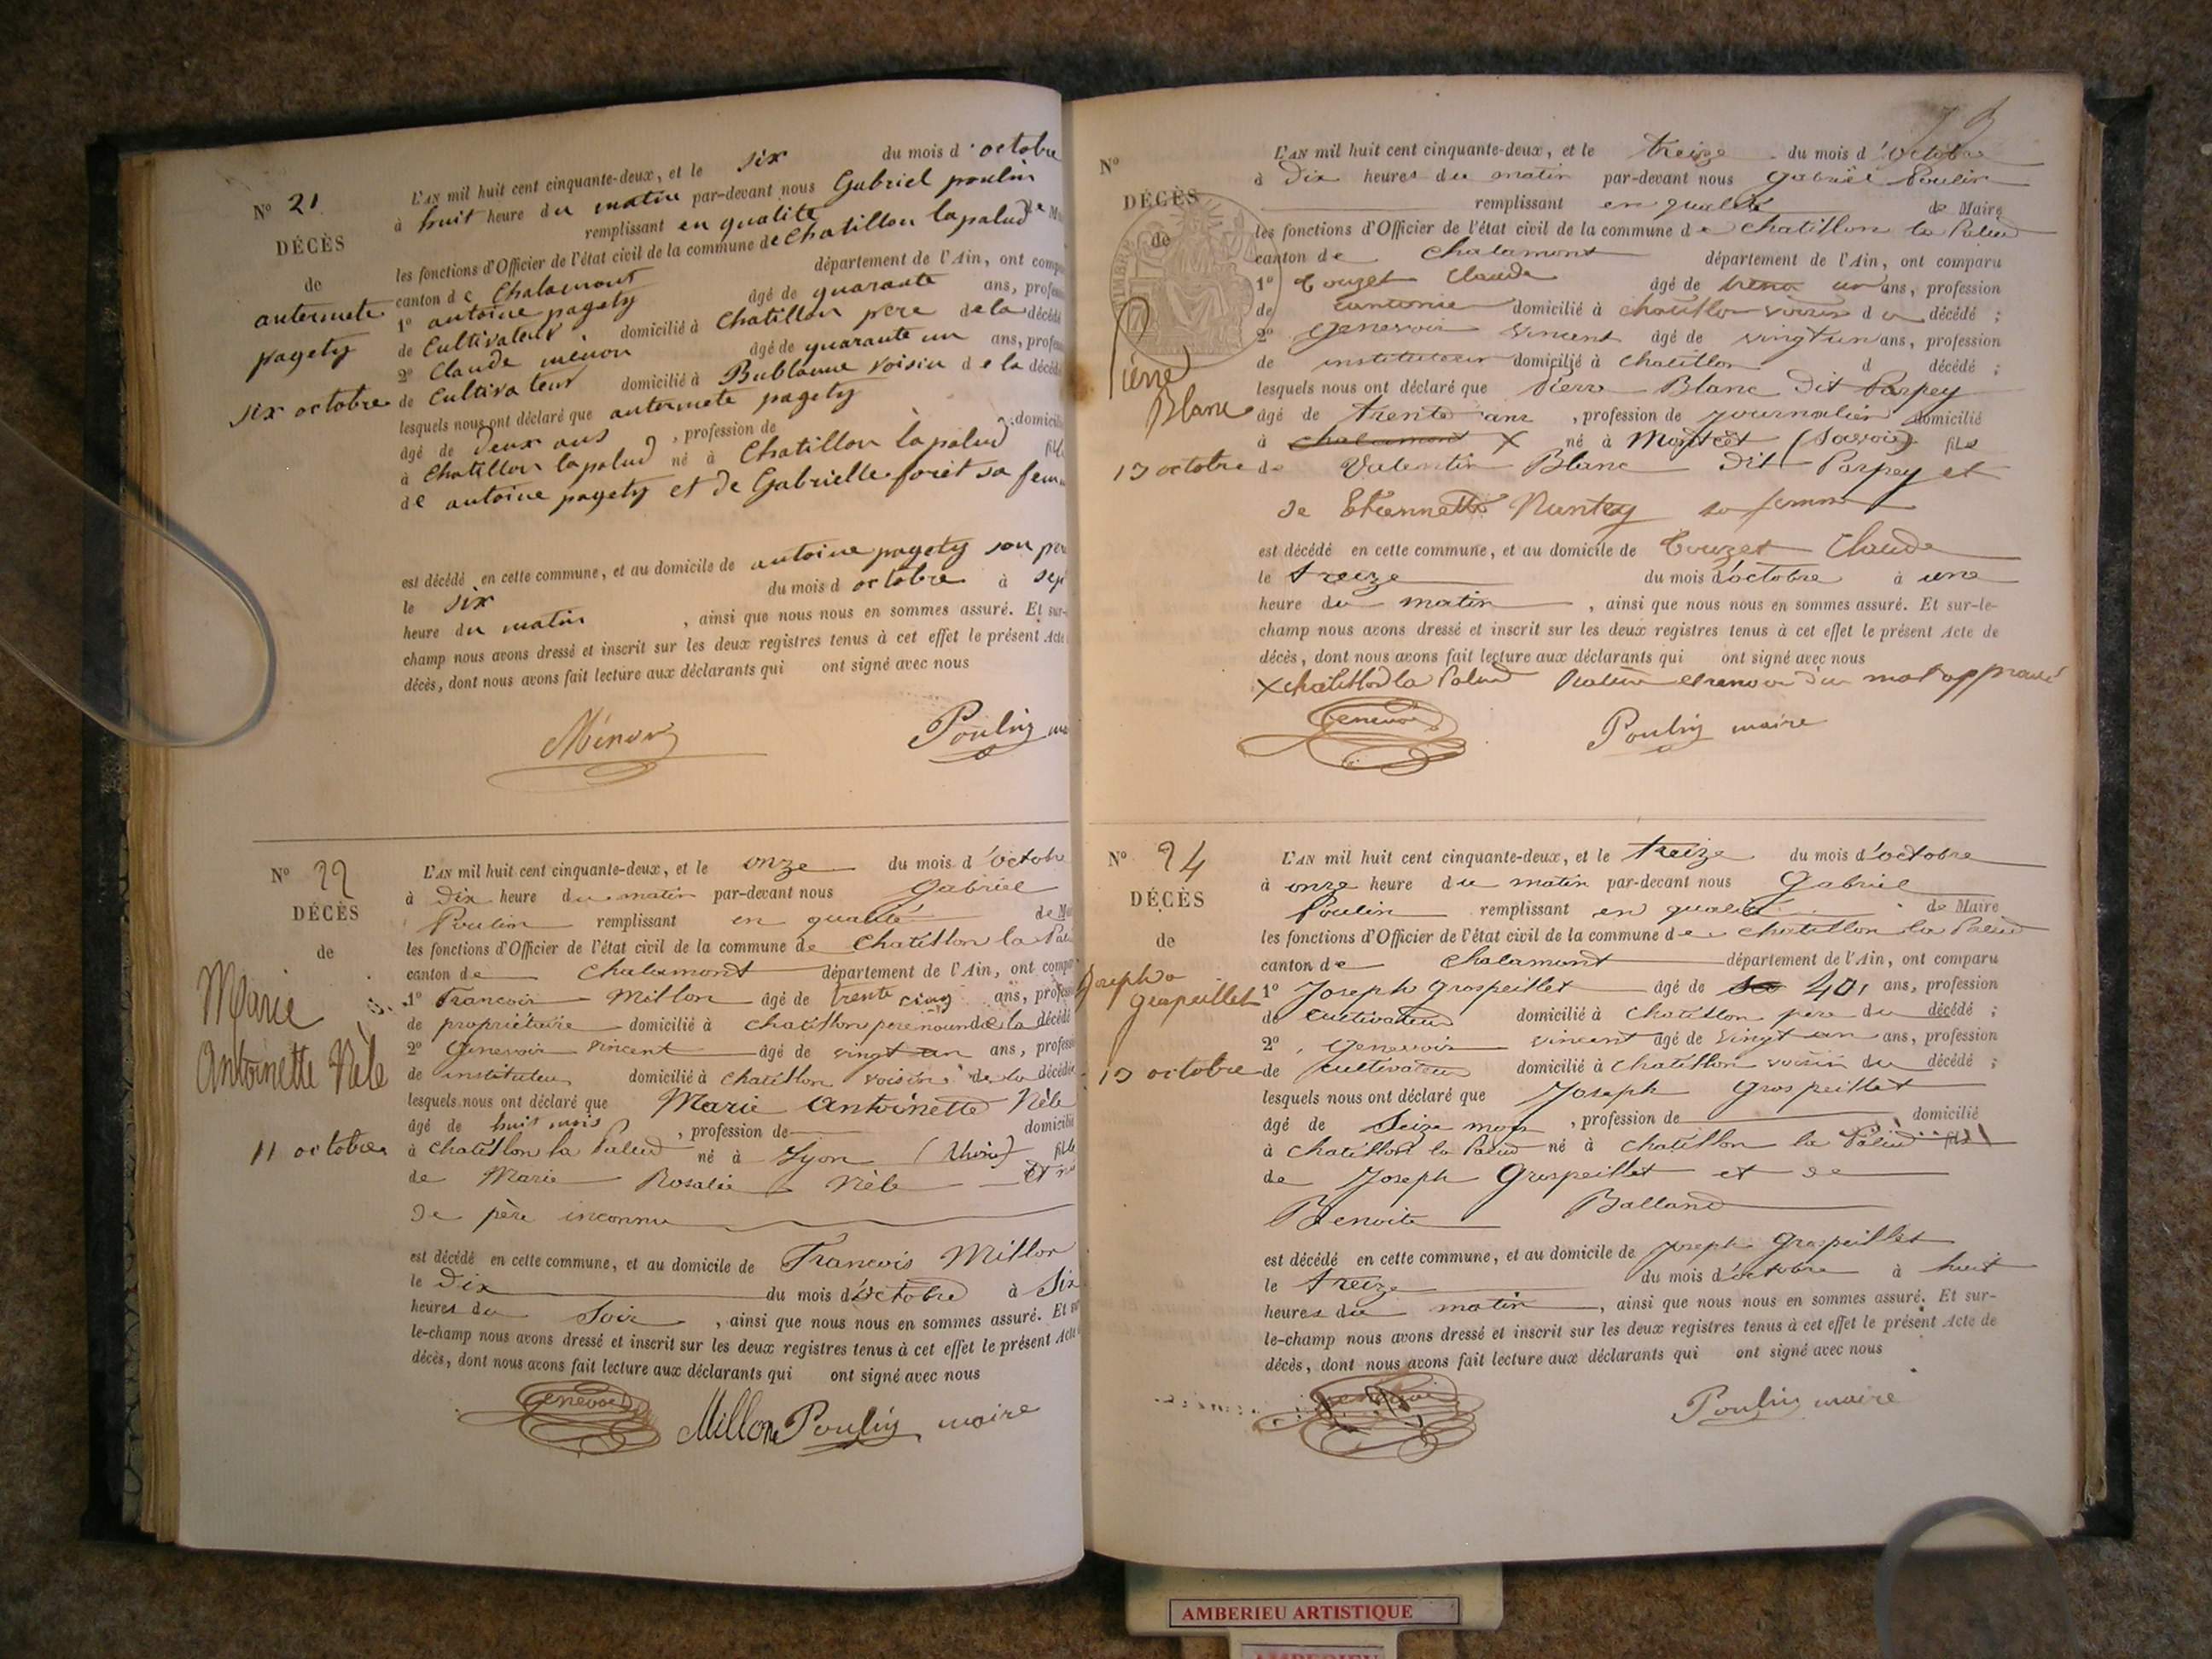 N° 21
DÉCÈS
de
antermete
pagety
six octobre
L'AN mil huit cent cinquante-deux, et le six du mois d'octobre
à huit heure du matin par-devant nous Gabriel poulin
remplissant en qualité de
les fonctions d'Officier de l'état civil de la commune de Chatillon lapalud
canton de Chalamont département de l'Ain, ont
1° antoine pagety âgé de quarante ans,
de Cultivateur domicilié à Chatillon père de la décédé
2° Claude menon âgé de quarante un ans,
de Cultivateur domicilié à Bublanne voisin de la décédé
lesquels nous ont déclaré que antermete pagety
âgé de deux ans , profession de
à Chatillon lapalud né à Chatillon lapalud
de antoine pagety et de Gabrielle forêt sa
est décédé en cette commune, et au domicile de antoine pagety son
le six du mois d octobre à sept
heure du matin , ainsi que nous nous en sommes assuré. Et sur-
champ nous avons dressé et inscrit sur les deux registres tenus à cet effet le présent Acte
décès, dont nous avons fait lecture aux déclarants qui ont signé avec nous
Ménon Poulin
N° 22
DÉCÈS
de
Marie
Antoinette Nèle
11 octobre
L'AN mil huit cent cinquante-deux, et le onze du mois d'octobre
à Dix heure du matin par-devant nous Gabriel
Poulin remplissant en qualité de
les fonctions d'Officier de l'état civil de la commune de Chatillon la
canton de Chalamont département de l'Ain, ont
1° Francois Millon âgé de trente cinq ans,
de propriétaire domicilié à chatillon père de la décédé
2° Genevois Vincent âgé de vingt un ans,
de instituteur domicilié à Chatillon voisin de la décédée
lesquels nous ont déclaré que Marie Antoinette Nèle
âgé de huit mois , profession de
à Chatillon la Palud né à Lyon (Rhône) fille
de Marie Rosalie Nèle et
de père inconnu
est décédé en cette commune, et au domicile de Francois Millon
le Dix du mois d'octobre à Six
heures du Soir , ainsi que nous nous en sommes assuré. Et
le-champ nous avons dressé et inscrit sur les deux registres tenus à cet effet le présent Acte
décès, dont nous avons fait lecture aux déclarants qui ont signé avec nous
Genevois Millon Poulin maire
N°
DÉCÈS
de
TIMBRE
Pierre
Blanc
13 octobre
L'AN mil huit cent cinquante-deux, et le treize du mois d'octobre
à Dix heures du matin par-devant nous Gabriel Poulin
remplissant en qualité de Maire
les fonctions d'Officier de l'état civil de la commune de Chatillon la Palud
canton de Chalamont département de l'Ain, ont comparu
1° Couzet Claude âgé de trente un ans, profession
de domicilié à chatillon voisin du décédé ;
2° Genevois Vincent âgé de vingt un ans, profession
de instituteur domicilié à Chatillon d décédé ;
lesquels nous ont déclaré que Pierre Blanc Dit Parpey
âgé de trente ans , profession de journalier domicilié
à chalamont X né à (Savoie) fils
de Valentin Blanc Dit Parpey et
de Etiennette sa femme
est décédé en cette commune, et au domicile de Couzet Claude
le treize du mois d'octobre à une
heure du matin , ainsi que nous nous en sommes assuré. Et sur-le-
champ nous avons dressé et inscrit sur les deux registres tenus à cet effet le présent Acte de
décès, dont nous avons fait lecture aux déclarants qui ont signé avec nous
X chatillon la Palud Rature et renvoi d'un mot approuvé
Genevois Poulin maire
N° 24
DÉCÈS
de
Joseph
Grospeillet
13 octobre
L'AN mil huit cent cinquante-deux, et le treize du mois d'octobre
à onze heure du matin par-devant nous Gabriel
Poulin remplissant en qualité de Maire
les fonctions d'Officier de l'état civil de la commune de chatillon la Palud
canton de Chalamont département de l'Ain, ont comparu
1° Joseph Grospeillet âgé de 40 ans, profession
de cultivateur domicilié à Chatillon père du décédé ;
2° Genevois vincent âgé de vingt un ans, profession
de cultivateur domicilié à Chatillon voisin du décédé ;
lesquels nous ont déclaré que Joseph Grospeillet
âgé de Seize mois , profession de domicilié
à Chatillon la Palud né à Chatillon la Palud fils
de Joseph Grospeillet et de
Benoite Balland
est décédé en cette commune, et au domicile de Joseph Grospeillet
le treize du mois d'octobre à huit
heures du matin , ainsi que nous nous en sommes assuré. Et sur-
le-champ nous avons dressé et inscrit sur les deux registres tenus à cet effet le présent Acte de
décès, dont nous avons fait lecture aux déclarants qui ont signé avec nous
Genevois Poulin maire
AMBERIEU ARTISTIQUE
AMBERIEU